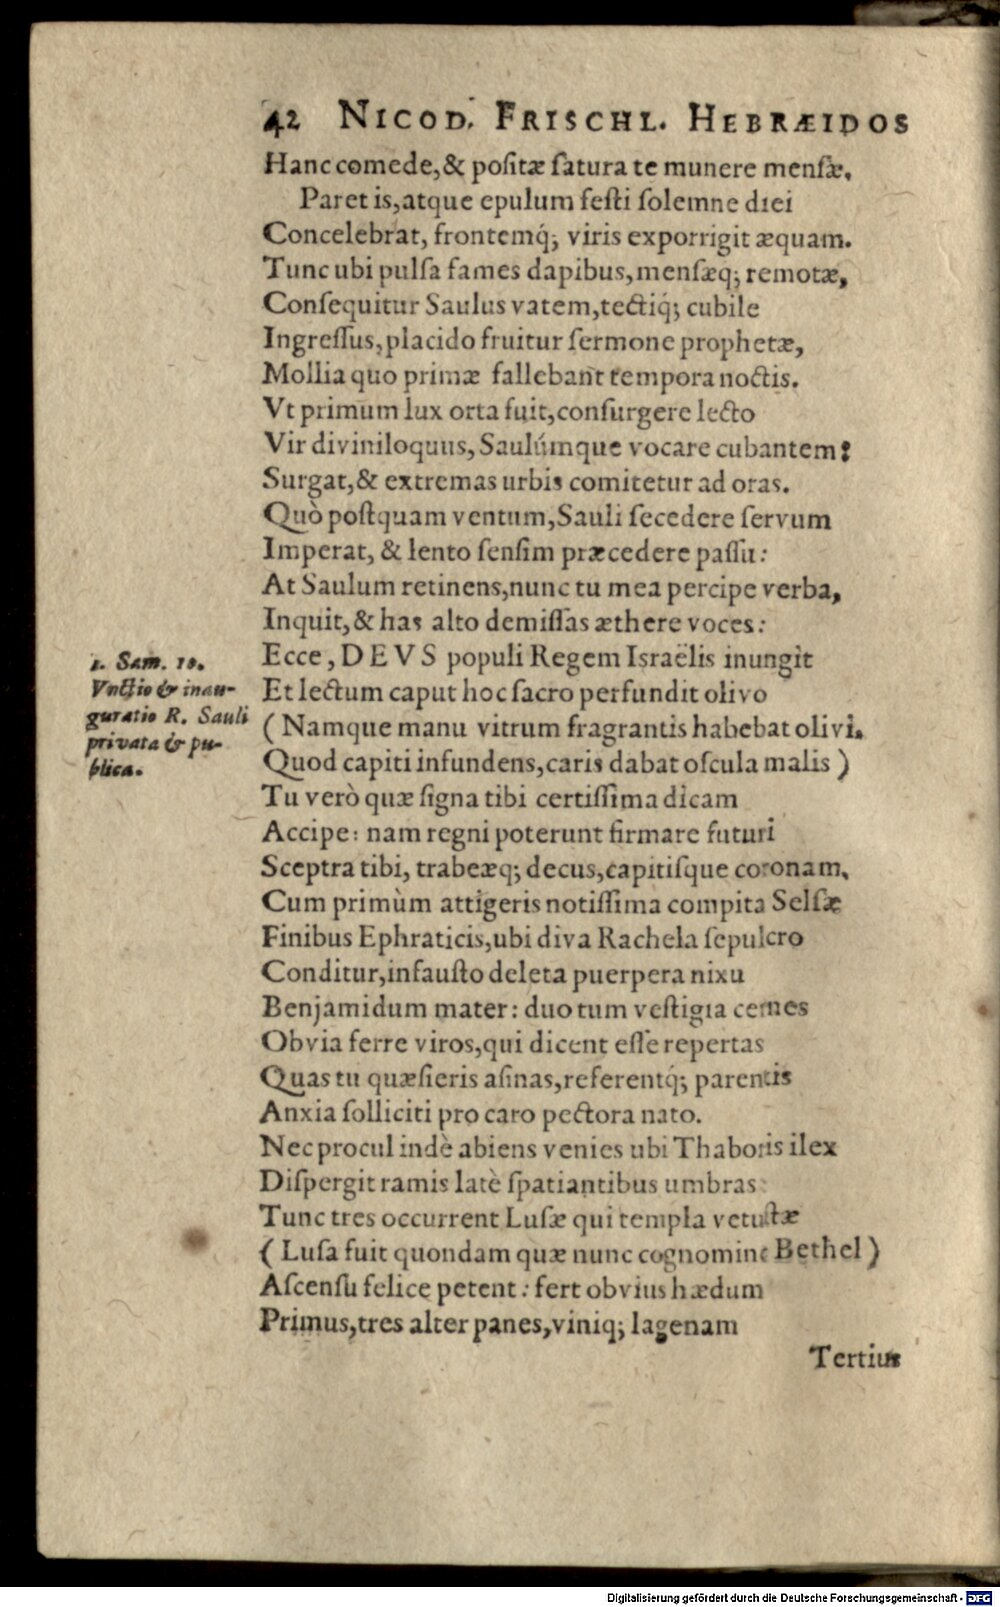 42 NICOD. FRISCHL. HEBRÆIDOS
Hanc comede, & positæ satura te munere mensæ.
Paret is, atque epulum festi solemne diei
Concelebrat, frontemq́; viris exporrigit æquam.
Tunc ubi pulsa fames dapibus, mensæq; remotæ,
Consequitur Saulus vatem, tectiq́; cubile
Ingressus, placido fruitur sermone prophetæ,
Mollia quo primæ fallebant tempora noctis.
Vt primum lux orta fuit, consurgere lecto
Vir diviniloquus, Saulúmque vocare cubantem:
Surgat, & extremas urbis comitetur ad oras.
Quò postquam ventum, Sauli secedere servum
Imperat, & lento sensim præcedere passu:
At Saulum retinens, nunc tu mea percipe verba,
Inquit, & has alto demissas æthere voces:
Ecce, DEVS populi Regem Israëlis inungit
Et lectum caput hoc sacro perfundit olivo
(Namque manu vitrum fragrantis habebat olivi.
Quod capiti infundens, caris dabat oscula malis)
Tu verò quæ signa tibi certissima dicam
Accipe: nam regni poterunt firmare futuri
Sceptra tibi, trabeæq; decus, capitisque coronam.
Cum primùm attigeris notissima compita Selsæ
Finibus Ephraticis, ubi diva Rachela sepulcro
Conditur, infausto deleta puerpera nixu
Benjamidum mater: duo tum vestigia cernes
Obvia ferre viros, qui dicent esse repertas
Quas tu quæsieris asinas, referentq́; parentis
Anxia solliciti pro caro pectora nato.
Nec procul indè abiens venies ubi Thaboris ilex
Dispergit ramis latè spatiantibus umbras
Tunc tres occurrent Lusæ qui templa vetustæ
(Lusa fuit quondam quæ nunc cognomine Bethel)
Ascensu felice petent: fert obvius hædum
Primus, tres alter panes, viniq; lagenam
Tertius
1. Sam. 10.
Vnctio & inau-
guratio R. Sauli
privata & pu-
blica.
Digitalisierung gefördert durch die Deutsche Forschungsgemeinschaft - DFG